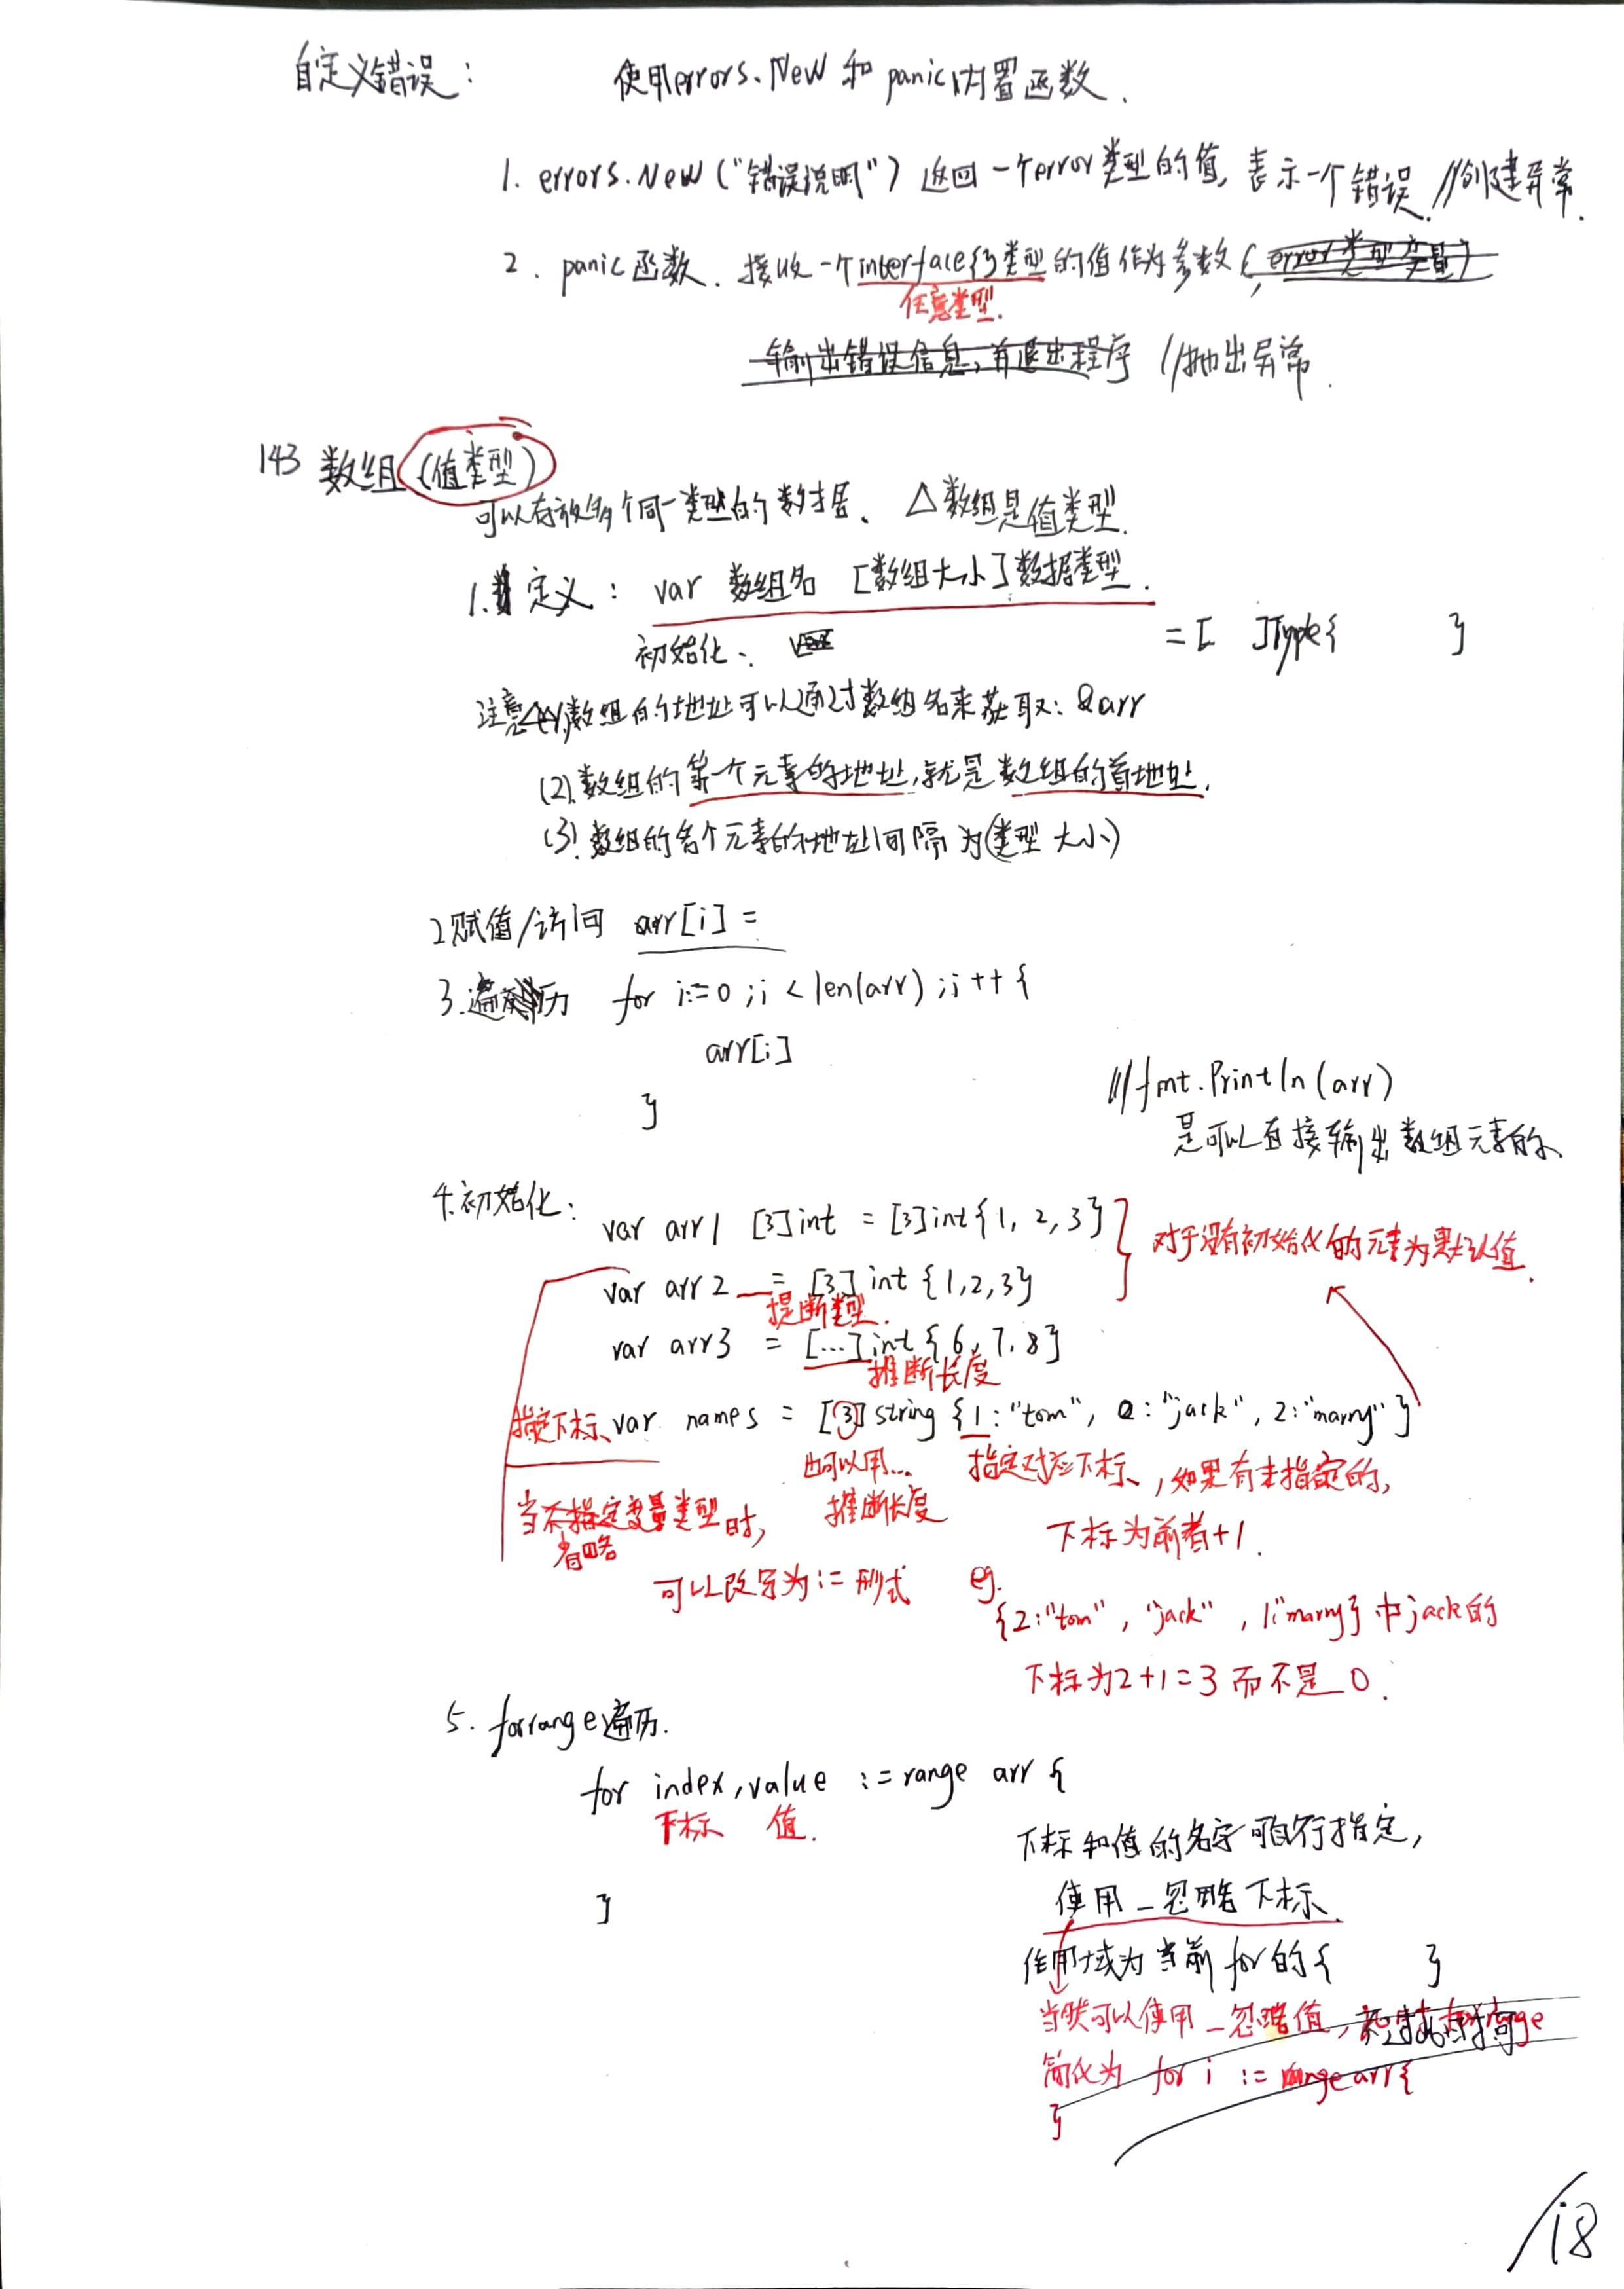 自定义错误： 使用errors.New 和 panic内置函数.
1. errors.New ("错误说明") 返回一个error类型的值, 表示一个错误. //创建异常.
2. panic函数. 接收一个interface{}类型的值作为参数 (error类型变量)
任意类型.
输出错误信息, 并退出程序 //抛出异常.
143 数组 (值类型)
可以存放多个同一类型的数据、 △数组是值类型.
1. 定义： var 数组名 [数组大小]数据类型.
初始化、 = [ ]Type{ }
注意(1)数组的地址可以通过数组名来获取: &arr
(2).数组的第一个元素的地址,就是数组的首地址.
(3).数组的各个元素的地址间隔为(类型大小)
2赋值/访问 arr[i] =
3.遍历 for i:=0 ; i < len(arr) ; i++ {
arr[i]
}
//fmt.Println(arr)
是可以直接输出数组元素的.
4.初始化: var arr1 [3]int = [3]int{1, 2, 3}
对于没有初始化的元素为默认值.
var arr2 = [3]int {1,2,3}
推断类型.
var arr3 = [...]int {6, 7, 8}
推断长度
指定下标、var names = [3]string {1:"tom", 0:"jack", 2:"marry"}
也可以用... 指定对应下标, 如果有未指定的,
推断长度 下标为前者+1.
当不指定变量类型时,
省略
可以改写为:=形式 eg.
{2:"tom", "jack", 1:"marry} 中jack的
下标为2+1=3 而不是0.
5. forrange遍历.
for index,value :=range arr {
下标 值.
}
下标和值的名字可自行指定,
使用_忽略下标.
作用域为当前for的{ }
当然可以使用_忽略值,
简化为 for i := range arr{
}
18